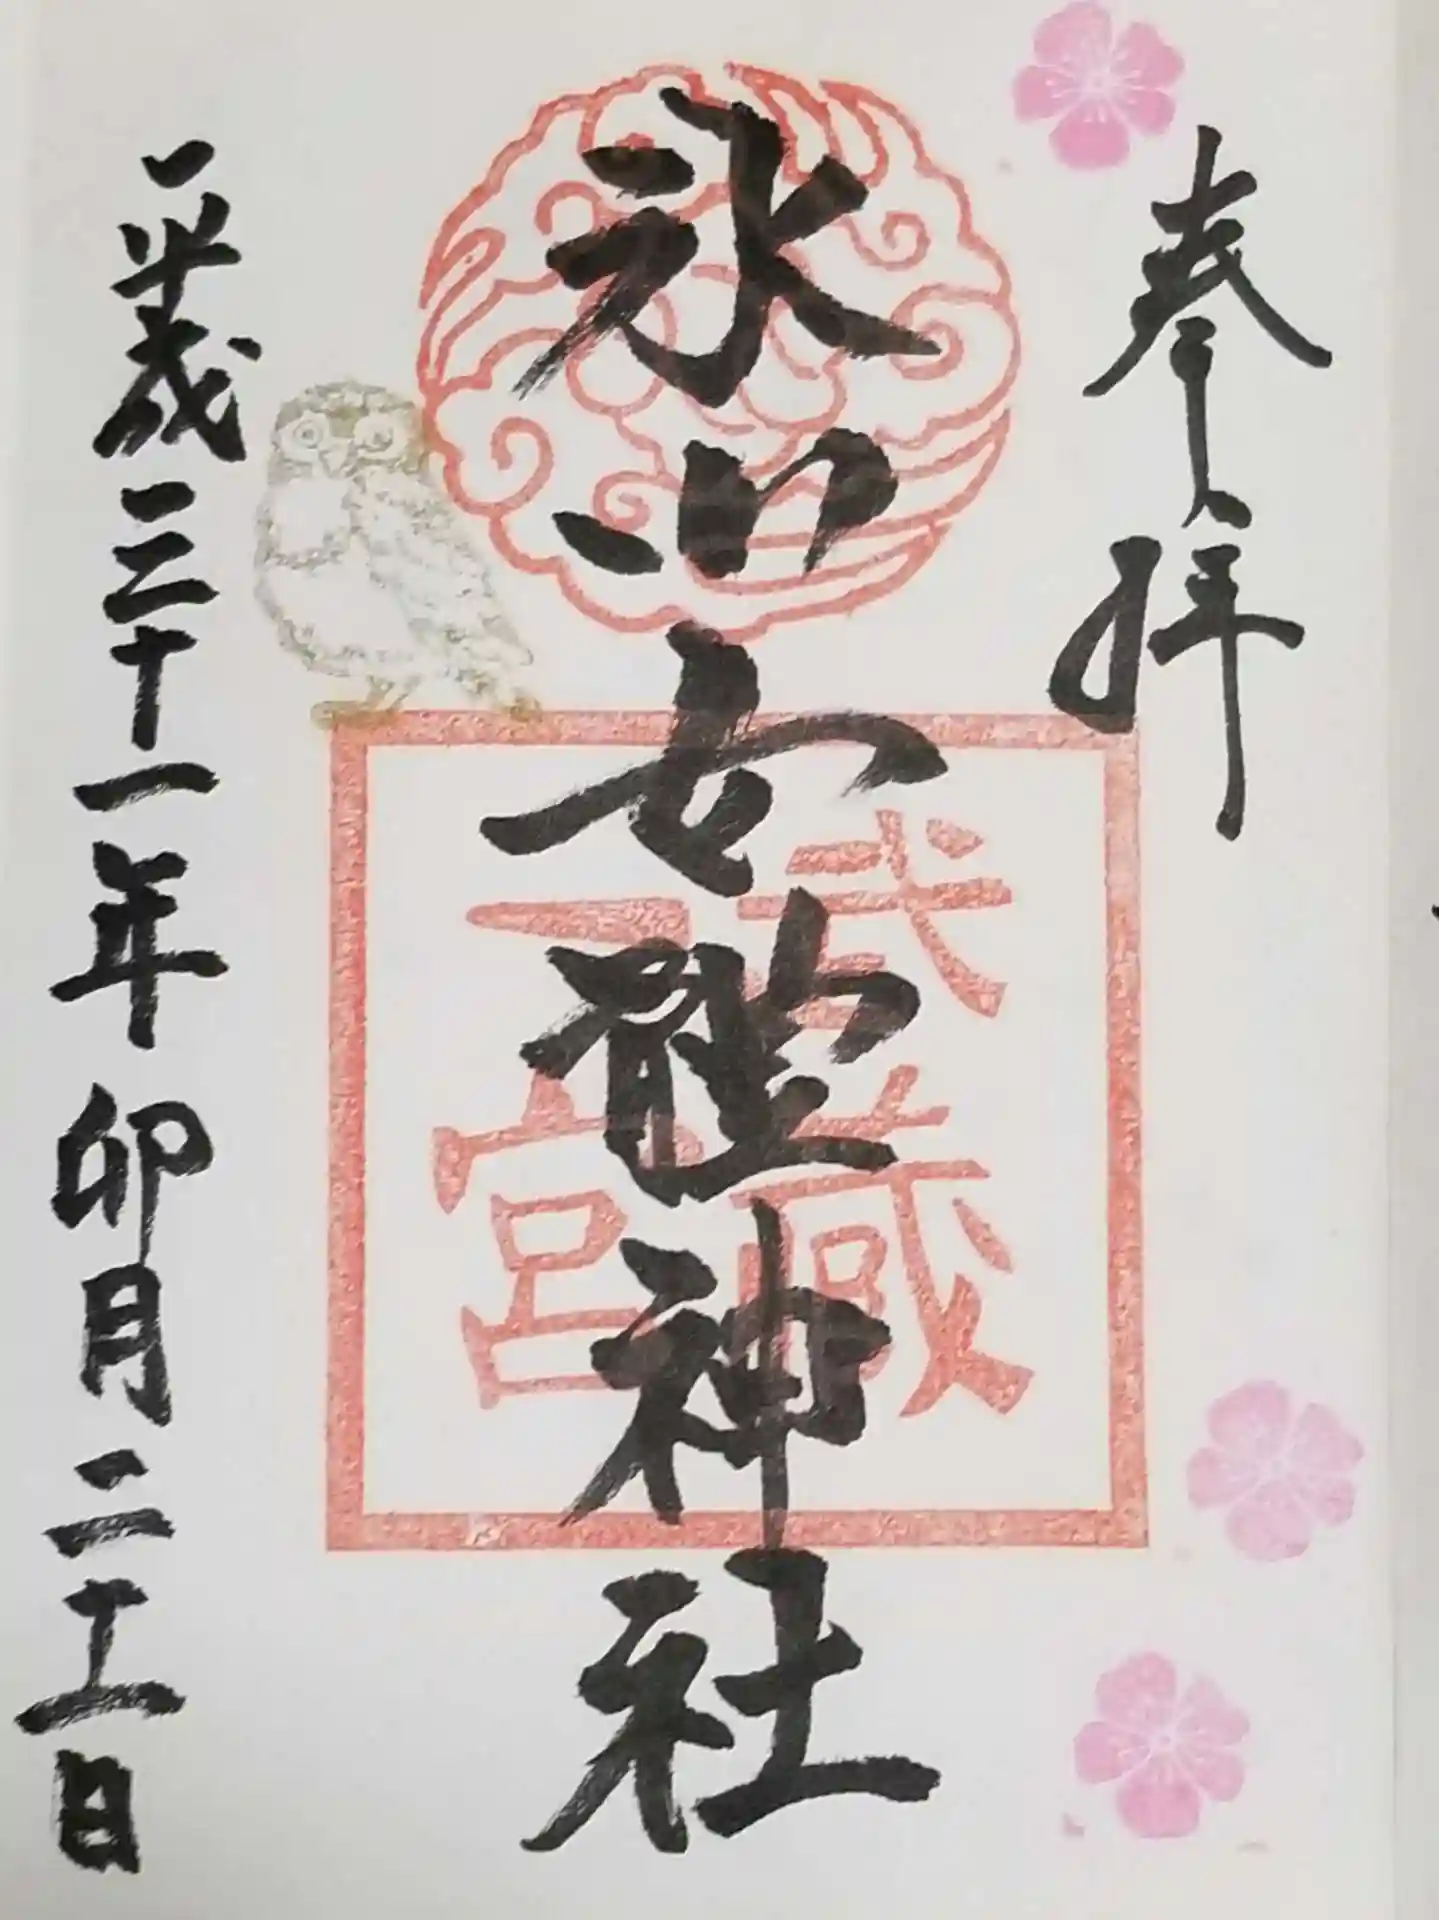 奉拝
氷川女體神社
武蔵
一宮
平成三十一年卯月二十一日